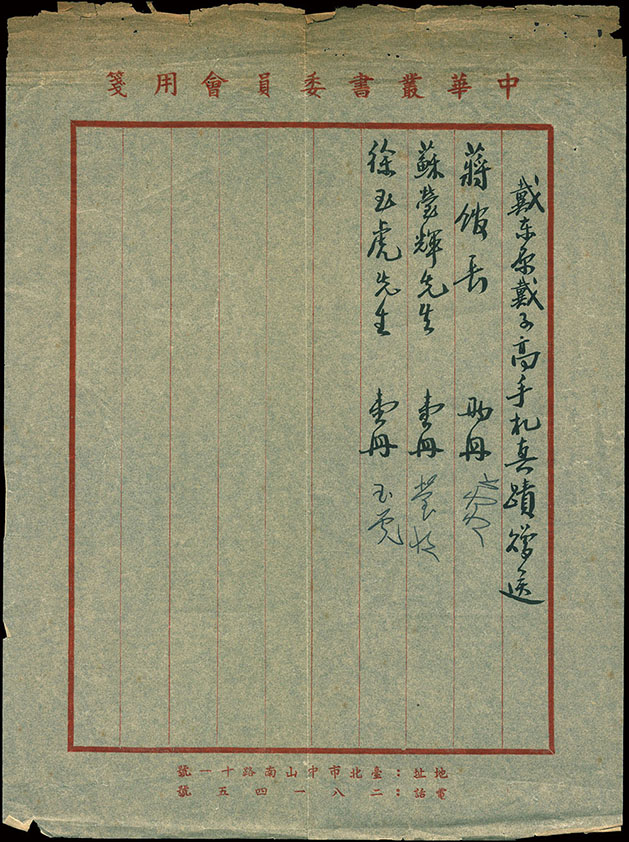 中華叢書委員會用箋
戴东原戴子高手札真蹟贈送
蔣館長 冊
蘇瑩輝先生 壹冊 瑩輝
徐玉虎先生 壹冊 玉虎
地址：臺北市中山南路十一號
電話：二八一四五號